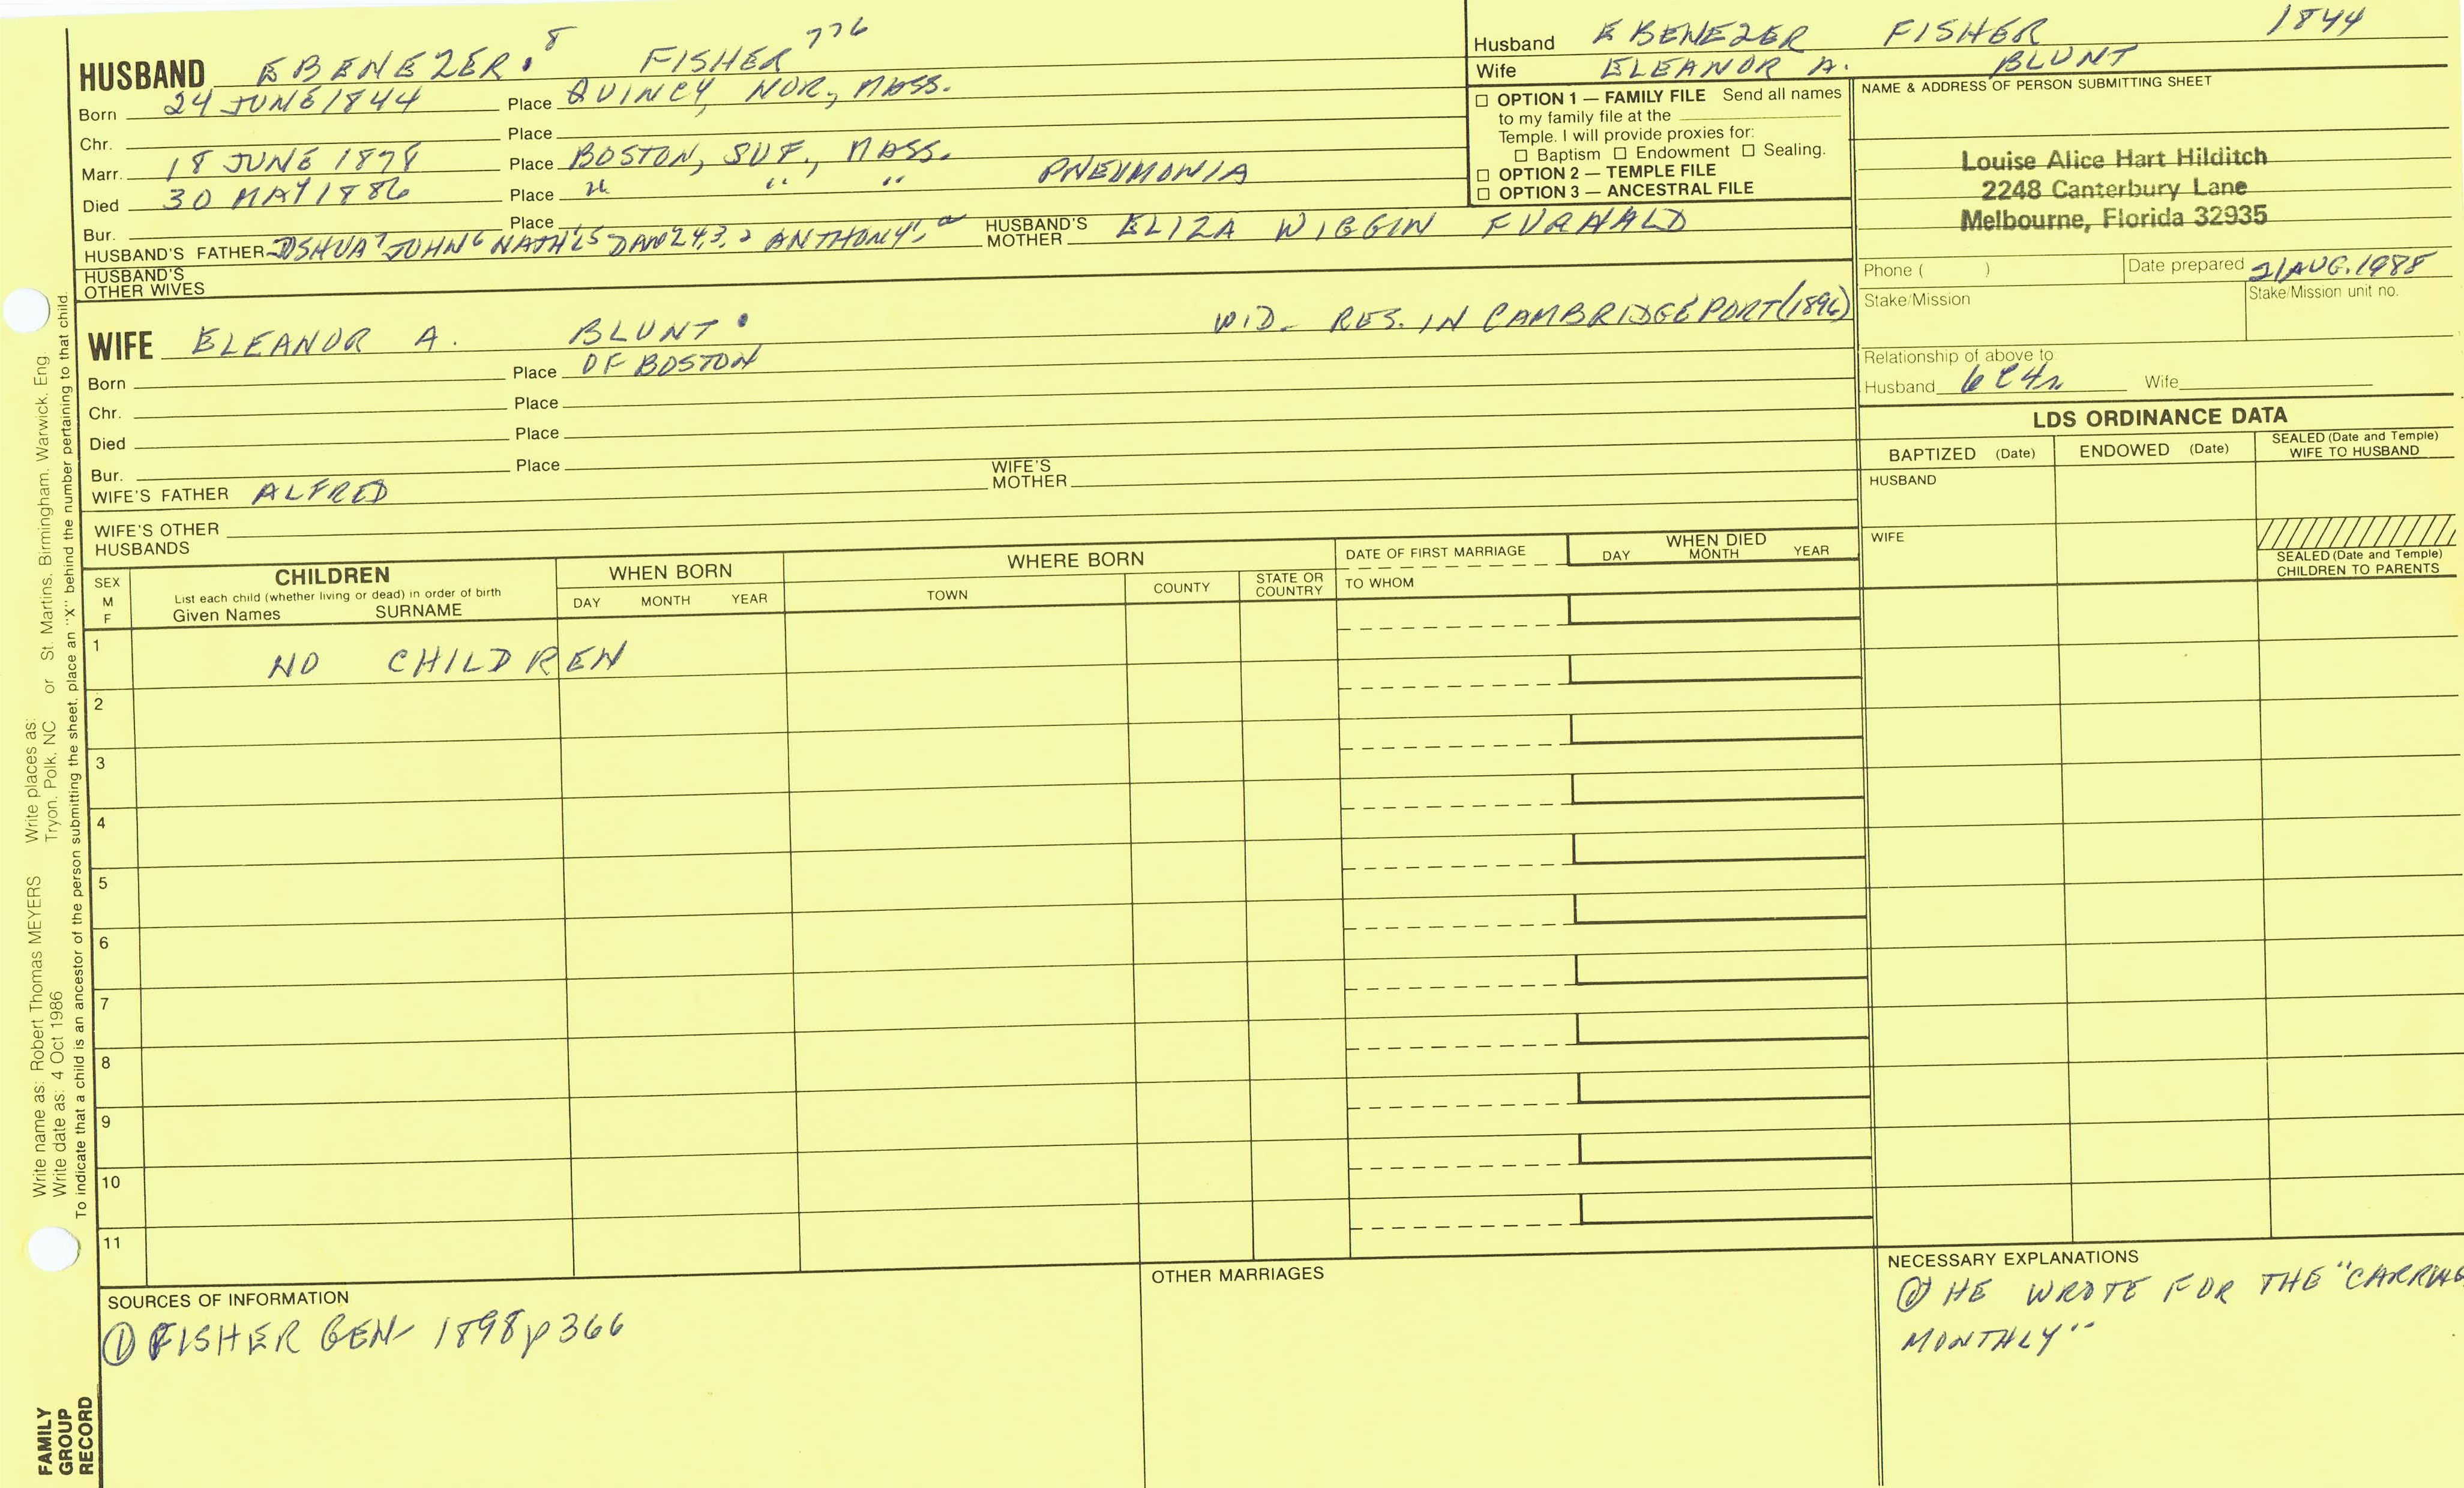 HUSBAND EBENEZER. 8 FISHER 776
Born 24 JUNE 1844 Place QUINCY, NOR., MASS.
Chr. Place
Marr. 18 JUNE 1878 Place BOSTON, SUF., MASS.
Died 30 MAY 1886 Place " " " PNEUMONIA
Bur. Place
HUSBAND'S FATHER JOSHUA7 JOHN6 NATH'L5 DAN'L 4,3,2 ANTHONY1, HUSBAND'S MOTHER ELIZA WIGGIN FURNALD
HUSBAND'S OTHER WIVES
WIFE ELEANOR A. BLUNT WID. RES. IN CAMBRIDGEPORT (1896)
Born Place OF BOSTON
Chr. Place
Died Place
Bur. Place
WIFE'S FATHER ALFRED WIFE'S MOTHER
WIFE'S OTHER HUSBANDS
Husband EBENEZER FISHER 1844
Wife ELEANOR A. BLUNT
☐ OPTION 1 — FAMILY FILE Send all names
to my family file at the
Temple. I will provide proxies for:
☐ Baptism ☐ Endowment ☐ Sealing.
☐ OPTION 2 — TEMPLE FILE
☐ OPTION 3 — ANCESTRAL FILE
NAME & ADDRESS OF PERSON SUBMITTING SHEET
Louise Alice Hart Hilditch
2248 Canterbury Lane
Melbourne, Florida 32935
Phone ( ) Date prepared 21 AUG. 1988
Stake/Mission Stake/Mission unit no.
Relationship of above to
Husband 6C4R Wife
LDS ORDINANCE DATA
BAPTIZED (Date) ENDOWED (Date) SEALED (Date and Temple) WIFE TO HUSBAND
HUSBAND
WIFE
SEALED (Date and Temple) CHILDREN TO PARENTS
SEX M F
CHILDREN
List each child (whether living or dead) in order of birth
Given Names SURNAME
WHEN BORN
DAY MONTH YEAR
WHERE BORN
TOWN COUNTY STATE OR COUNTRY
DATE OF FIRST MARRIAGE
TO WHOM
WHEN DIED
DAY MONTH YEAR
1 NO CHILDREN
2
3
4
5
6
7
8
9
10
11
SOURCES OF INFORMATION
① FISHER GEN 1898 p 366
OTHER MARRIAGES
NECESSARY EXPLANATIONS
HE WROTE FOR THE "CARRIAGE
MONTHLY"
Write name as: Robert Thomas MEYERS Write places as: St. Martins, Birmingham, Warwick, Eng
Write date as: 4 Oct 1986 Tryon, Polk, NC or
To indicate that a child is an ancestor of the person submitting the sheet, place an "X" behind the number pertaining to that child.
FAMILY
GROUP
RECORD